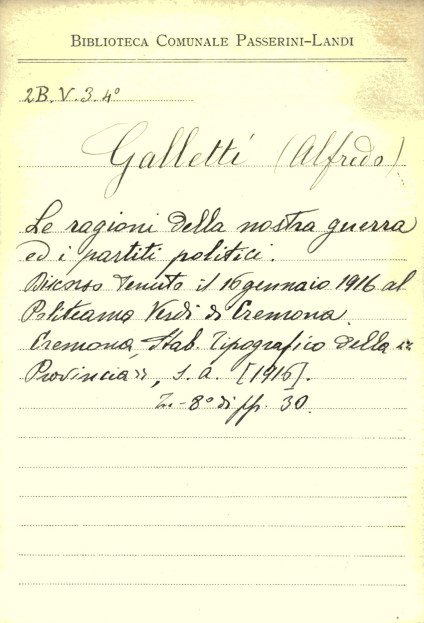 BIBLIOTECA COMUNALE PASSERINI-LANDI
2B.V.3.4°
Galletti (Alfredo)
Le ragioni della nostra guerra
ed i partiti politici.
Discorso tenuto il 16 gennaio 1916 al
Politeama Verdi di Cremona.
Cremona, Stab. Tipografico della «
Provincia», s. a. [1916].
in-8° di pp. 30.